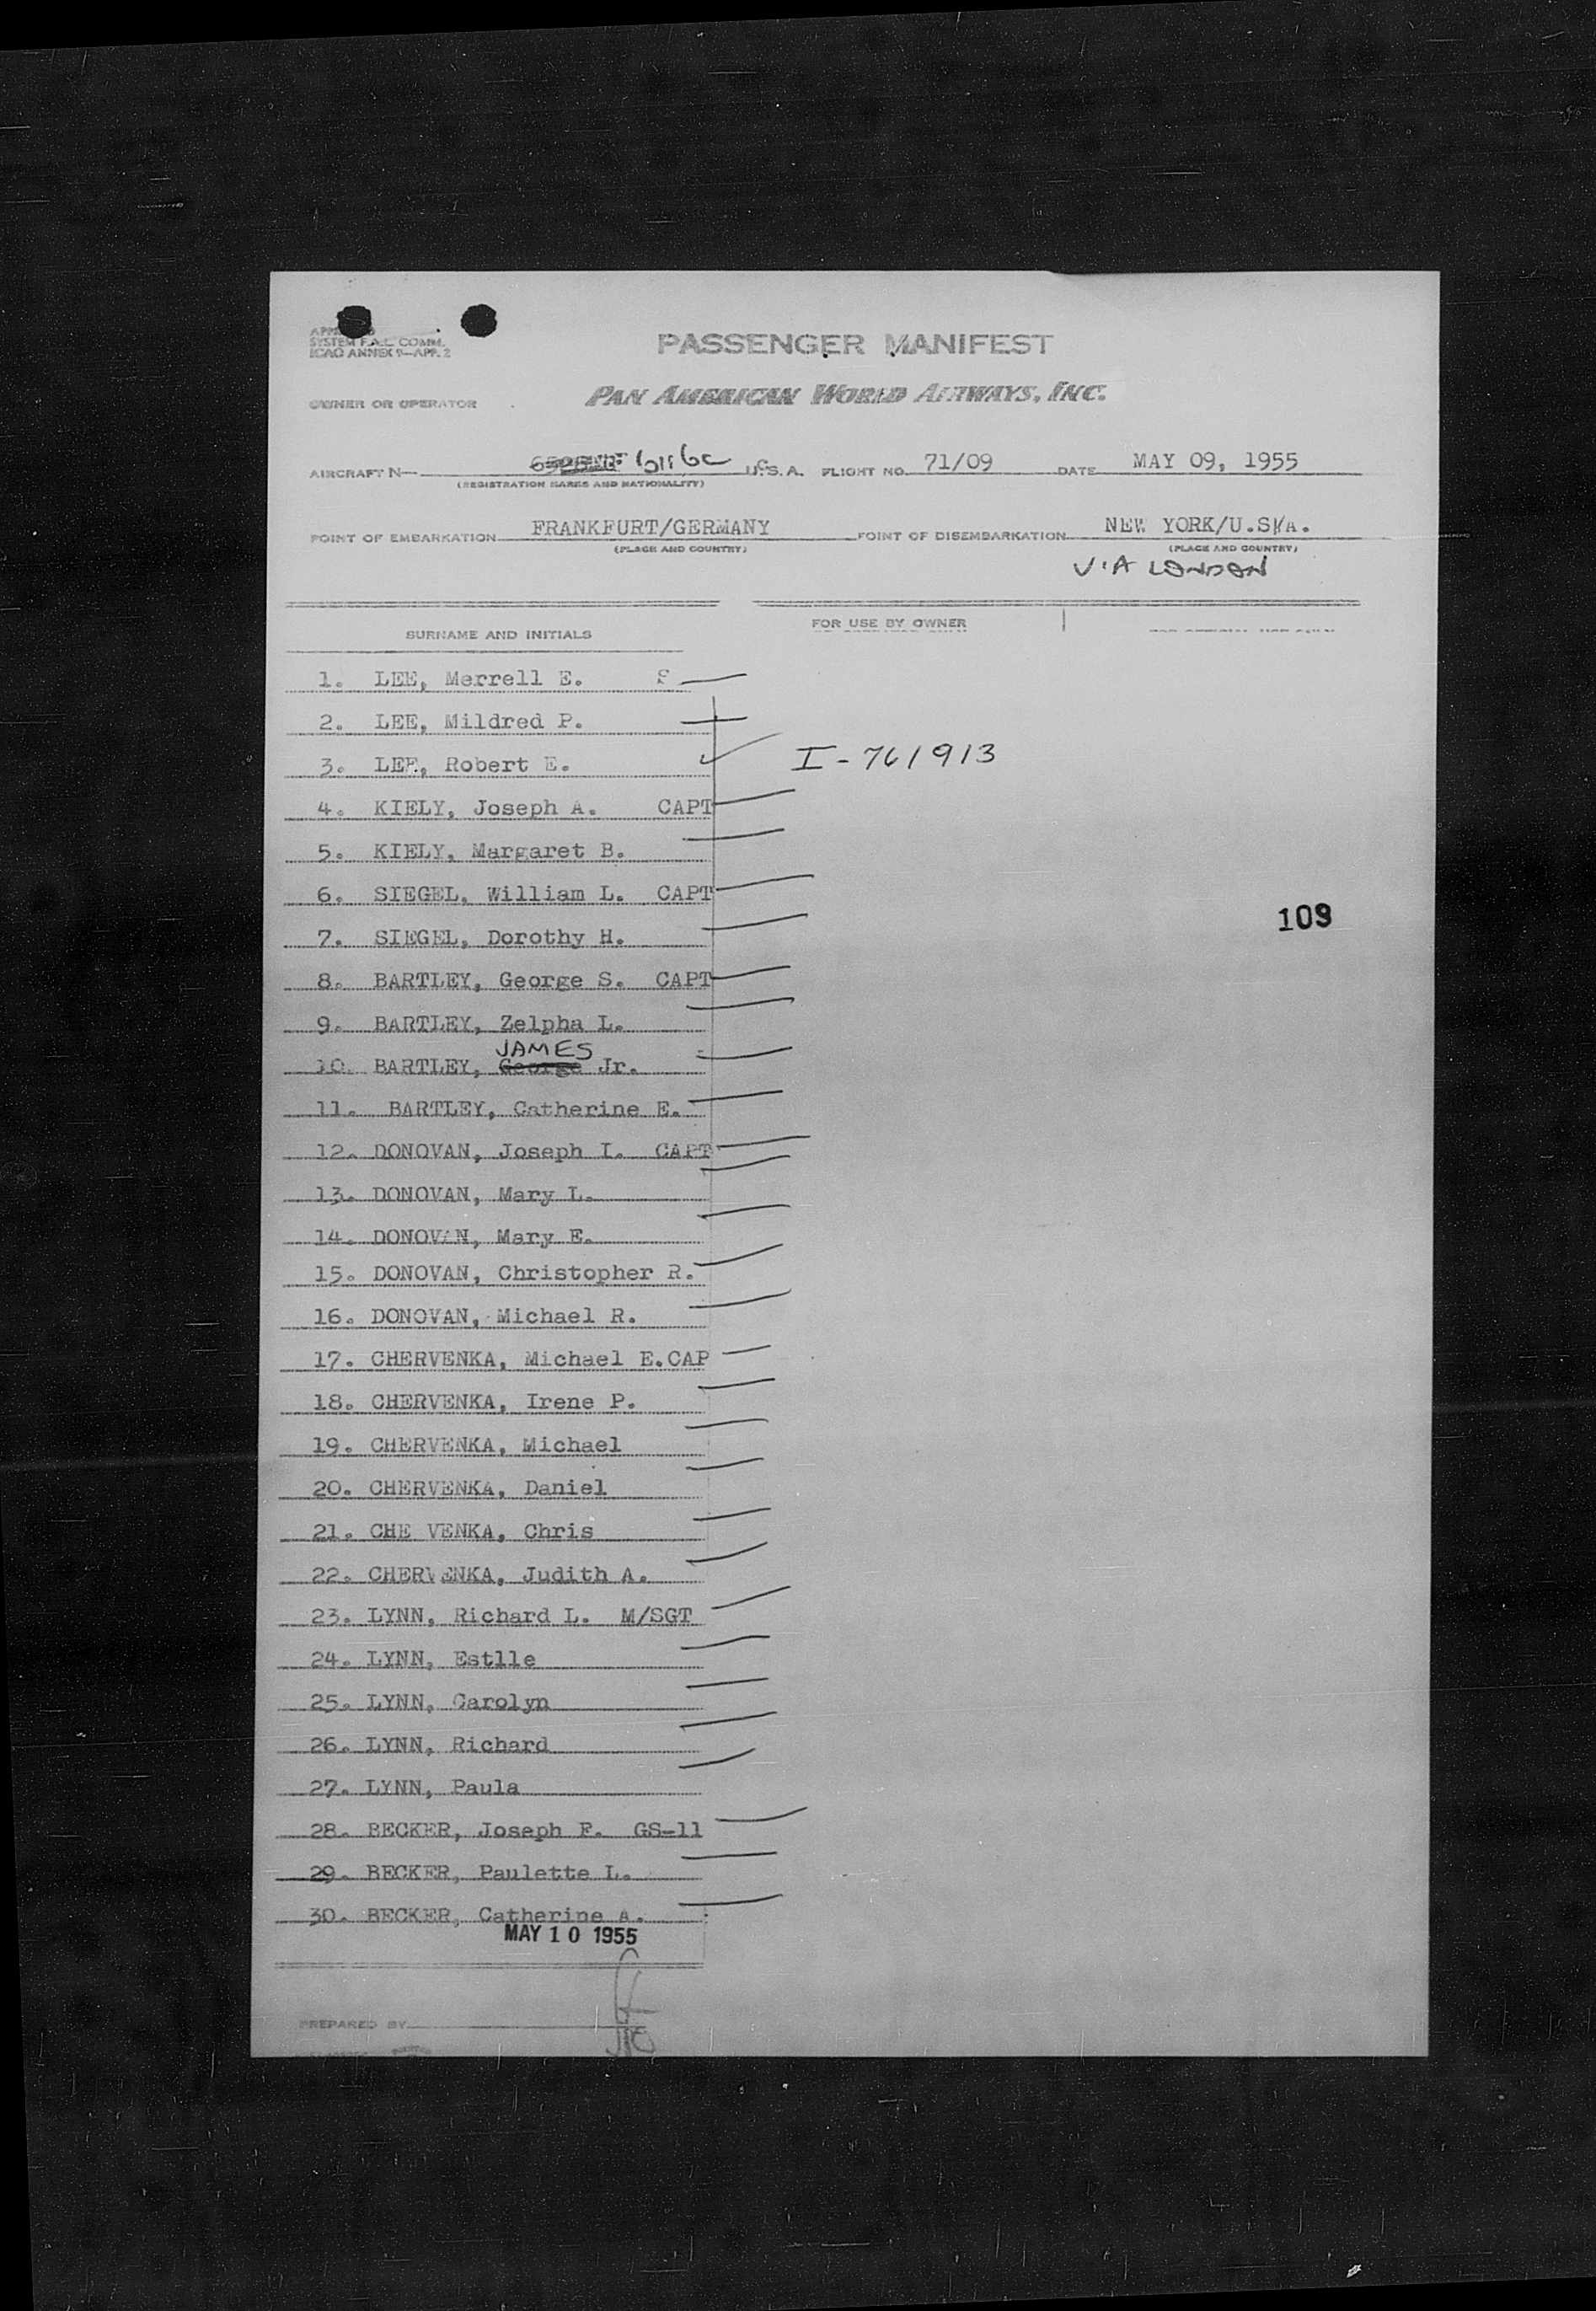 SYSTEM F.A.L. COMM.
ICAO ANNEX 9—APP. 2
PASSENGER MANIFEST
OWNER OR OPERATOR PAN AMERICAN WORLD AIRWAYS, INC.
AIRCRAFT N— U.S.A. FLIGHT NO. 71/09 DATE MAY 09, 1955
(REGISTRATION MARKS AND NATIONALITY)
POINT OF EMBARKATION FRANKFURT/GERMANY POINT OF DISEMBARKATION NEW YORK/U.S.A.
(PLACE AND COUNTRY) (PLACE AND COUNTRY)
VIA LONDON
SURNAME AND INITIALS FOR USE BY OWNER
1. LEE, Merrell E. S
2. LEE, Mildred P.
3. LEE, Robert E. I-761913
4. KIELY, Joseph A. CAPT
5. KIELY, Margaret B.
6. SIEGEL, William L. CAPT
109
7. SIEGEL, Dorothy H.
8. BARTLEY, George S. CAPT
9. BARTLEY, Zelpha L.
JAMES
10. BARTLEY, George Jr.
11. BARTLEY, Catherine E.
12. DONOVAN, Joseph I. CAPT
13. DONOVAN, Mary L.
14. DONOVAN, Mary E.
15. DONOVAN, Christopher R.
16. DONOVAN, Michael R.
17. CHERVENKA, Michael E.CAP
18. CHERVENKA, Irene P.
19. CHERVENKA, Michael
20. CHERVENKA, Daniel
21. CHE VENKA, Chris
22. CHERVENKA, Judith A.
23. LYNN, Richard L. M/SGT
24. LYNN, Estlle
25. LYNN, Carolyn
26. LYNN, Richard
27. LYNN, Paula
28. BECKER, Joseph F. GS-11
29. BECKER, Paulette L.
30. BECKER, Catherine A.
MAY 10 1955
PREPARED BY